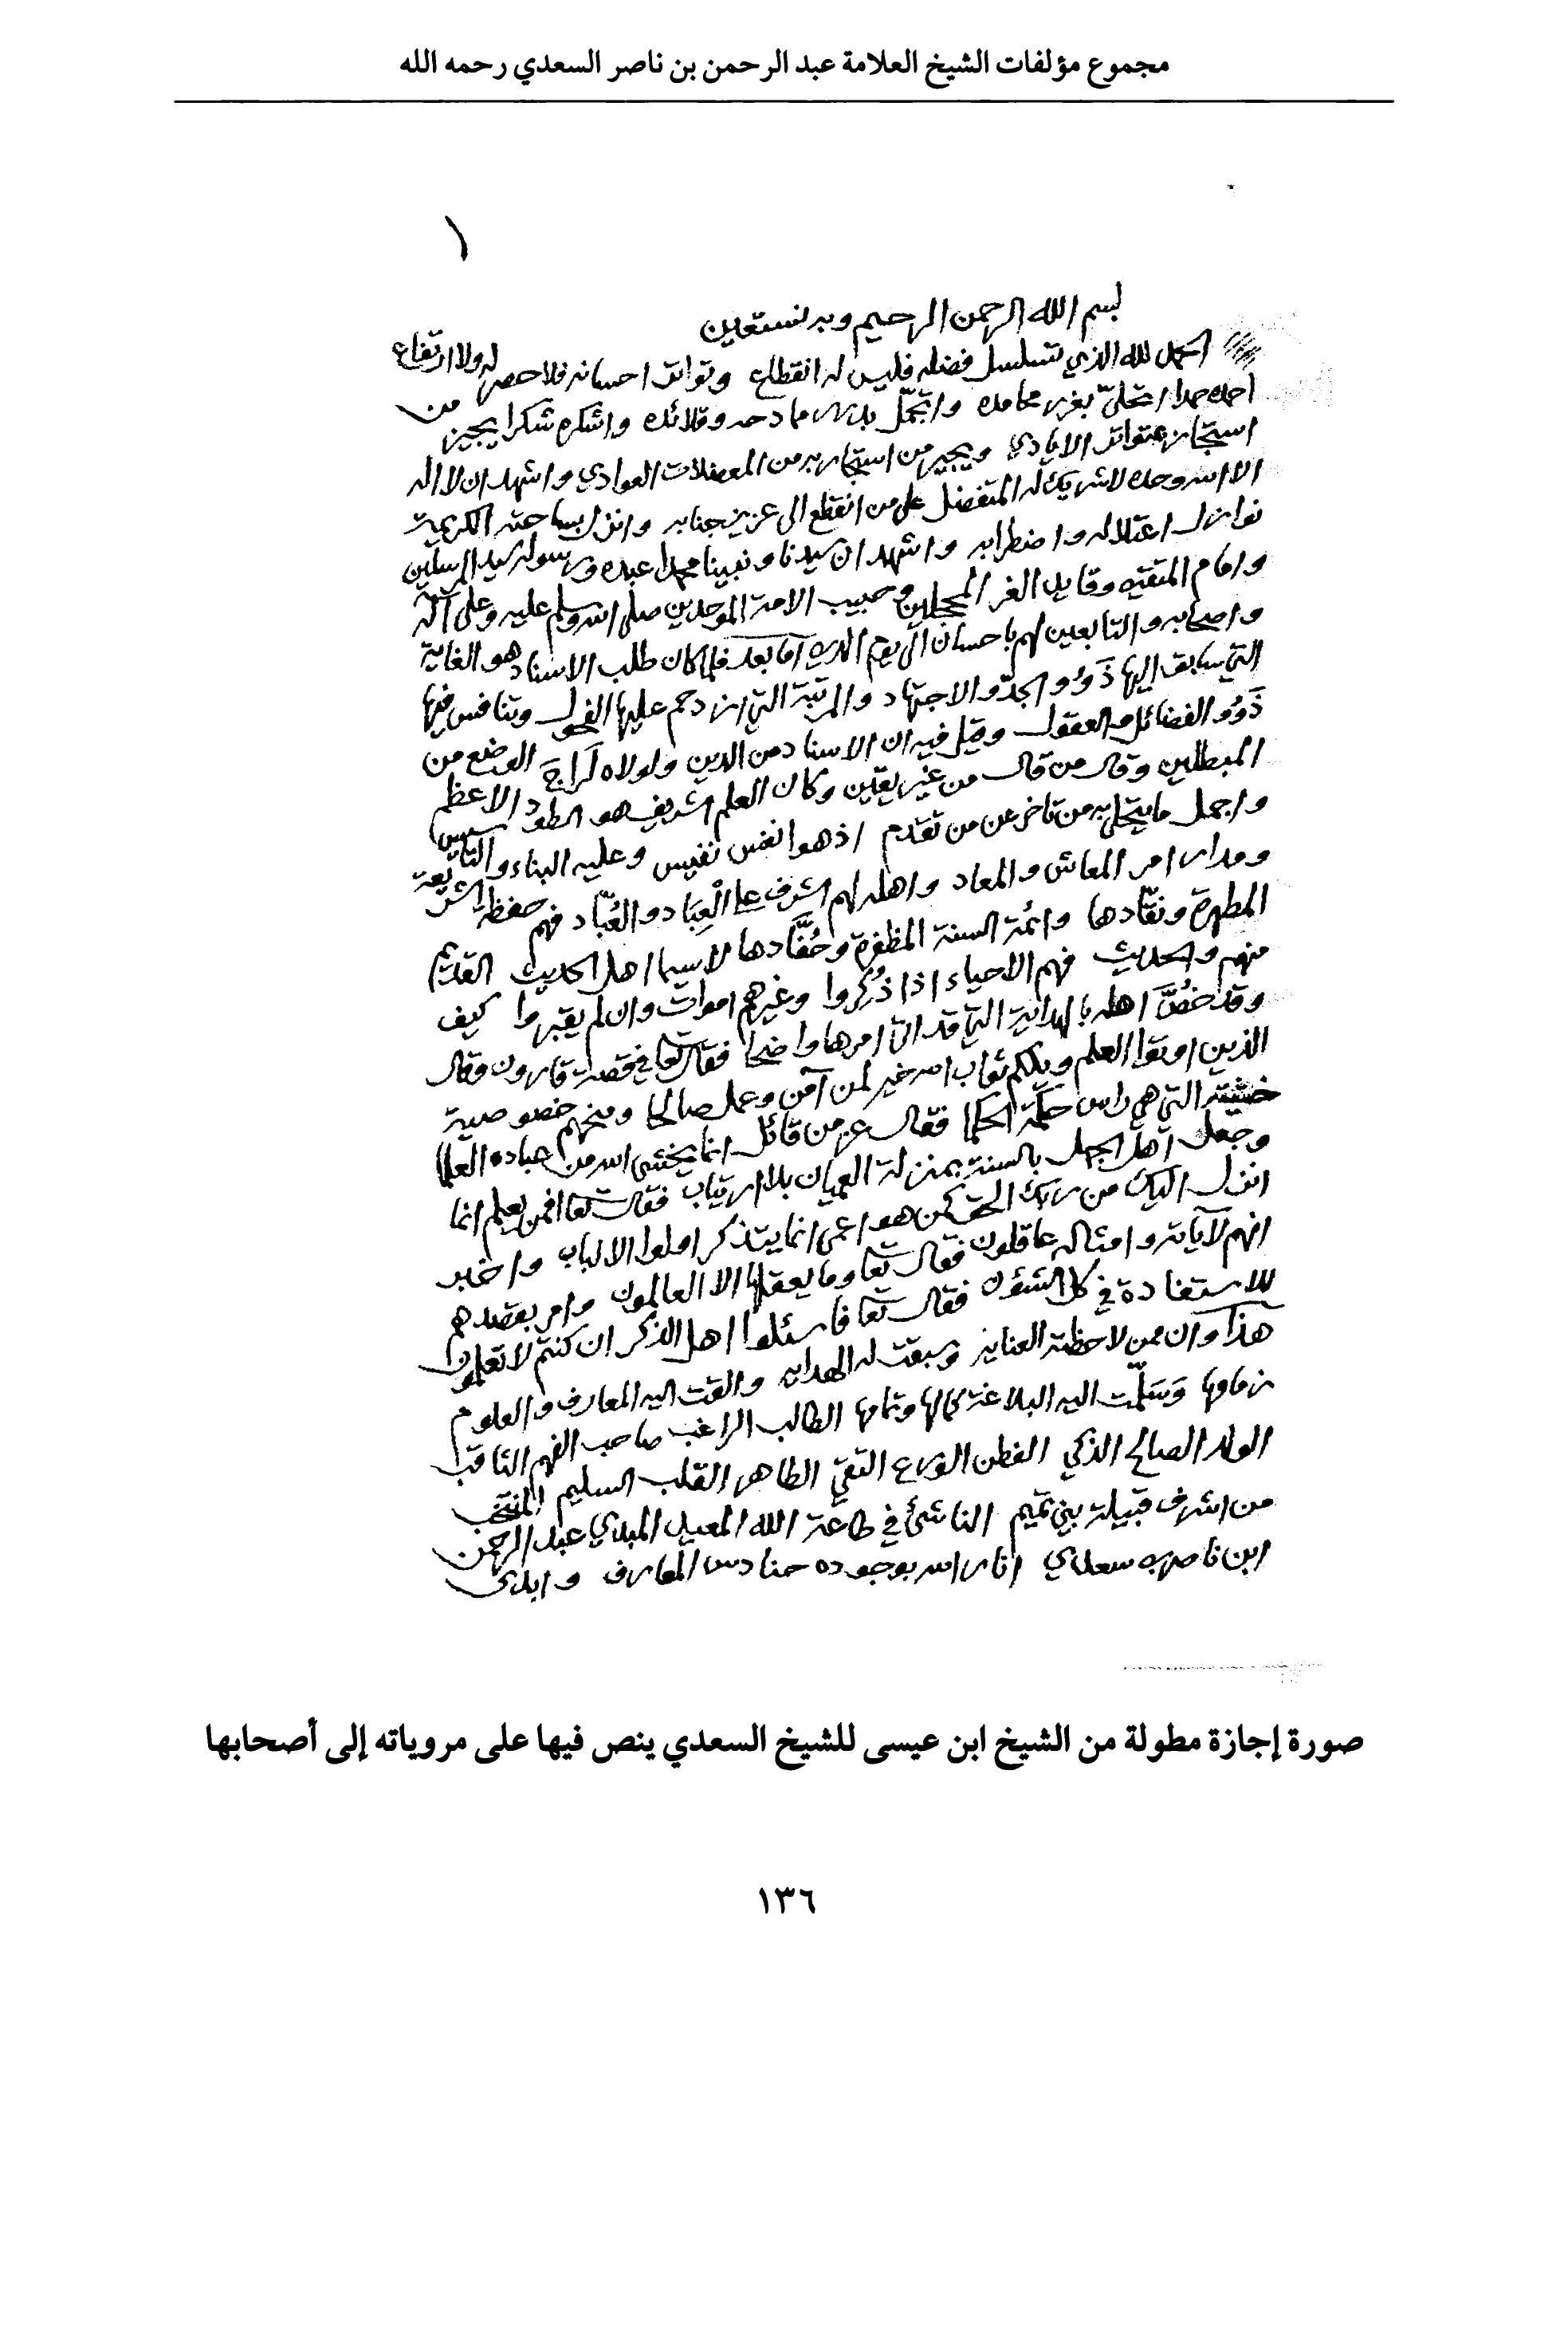 مجموع مؤلفات الشيخ العلامة عبد الرحمن بن ناصر السعدي رحمه الله
١
بسم الله الرحمن الرحيم وبه نستعين
الحمد لله الذي تسلسل فضله فليس له انقطاع وتواتر احسانه فلا حصر له ولا ارتفاع
احمده حمدا اتحلى بغرر محامده واتجمّل بدرر مادحه وقلائده واشكره شكرا يجيز من
استجاز بتواتر الايادي ويجير من استجار به من المعضلات العوادي واشهد ان لا اله
الا الله وحده لا شريك له المتفضل على من انقطع الى عزيز جنابه وانزل بساحته الكريمة
نوازل اعتلاله واضطرابه واشهد ان سيدنا ونبينا محمدا عبده ورسوله سيد المرسلين
وامام المتقين وقايد الغر المحجلين وحبيب الامة الموحدين صلى الله وسلم عليه وعلى آله
واصحابه والتابعين لهم باحسان الى يوم الدين اما بعد فلما كان طلب الاسناد هو الغاية
التي يتسابق اليها ذَوُو الجدّ والاجتهاد والمرتبة التي ازدحم عليها الفحول وتنافس فيها
ذَوُو الفضائل والعقول وقيل فيه ان الاسناد من الدين ولولاه لَراجَ الوضع من
المبطلين وقال من قال من غير يقين وكان العلم الشريف هو الطود الاعظم
واجمل ما يتحلى به من تاخر عن من تقدم اذ هو انفس نفيس وعليه البناء والتاسيس
ومدار امر المعاش والمعاد واهله لهم الشرف على الْعِبَاد والعُبّاد فهم حفظة الشريعة
المطهرة ونقّادها وائمة السنة المظفرة وحُفَّادها لاسيما اهل الحديث القديم
منهم والحديث فهم الاحياء اذا ذُكروا وغيرهم اموات وان لم يقبروا كيف
وقد خُصَّ اهله بالهداية التي قد اتى امرها واضحا فقال تعا في قصة قارون وقال
الذين اوتوا العلم ويلكم ثواب الله خير لمن آمن وعمل صالحا ومنحهم خصوصية
خشيته التي هي راس حكمة الحكما فقال عز من قائل انما يخشى الله من عباده العلما
وجعل اهل الجهل بالسنة بمنزلة العميان بلا ارتياب فقال تعا افمن يعلم انما
انزل اليك من ربك الحق كمن هو اعمى انما يتذكر اولوا الالباب واخبر
انهم لآياته وامثاله عاقلون فقال تعا وما يعقلها الا العالمون وامر بقصدهم
للاستفادة في كل الشئون فقال تعا فاسئلوا اهل الذكر ان كنتم لا تعلمون
هذا وان ممن لاحظته العناية وسبقت له الهداية والقت اليه المعارف والعلوم
زمامها وَسَلّمت اليه البلاغة كمالها وتمامها الطالب الراغب صاحب الفهم الثاقب
الولد الصالح الذكي الفطن الورع التقي الطاهر القلب السليم المنتخب
من اشرف قبيلة بني تميم الناشئ في طاعة الله المعيد المبدي عبد الرحمن
ابن ناصر بن سعدي انار الله بوجوده حنادس المعارف وابدى
صورة إجازة مطولة من الشيخ ابن عيسى للشيخ السعدي ينص فيها على مروياته إلى أصحابها
١٣٦